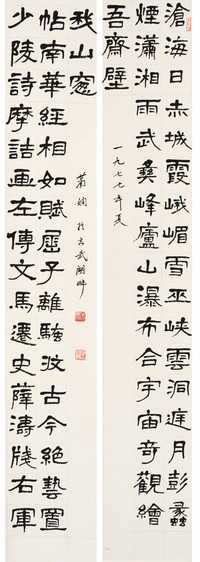 滄海日赤城霞峨嵋雪巫峽雲洞庭月彭蠡
煙瀟湘雨武彝峰廬山瀑布合宇宙奇觀繪
吾齋壁
一九七七年夏
少陵詩摩詰画左傳文馬遷史薛濤牋右軍
帖南華經相如賦屈子離騷收古今絕藝置
我山窗
蕭嫻於玄武湖畔